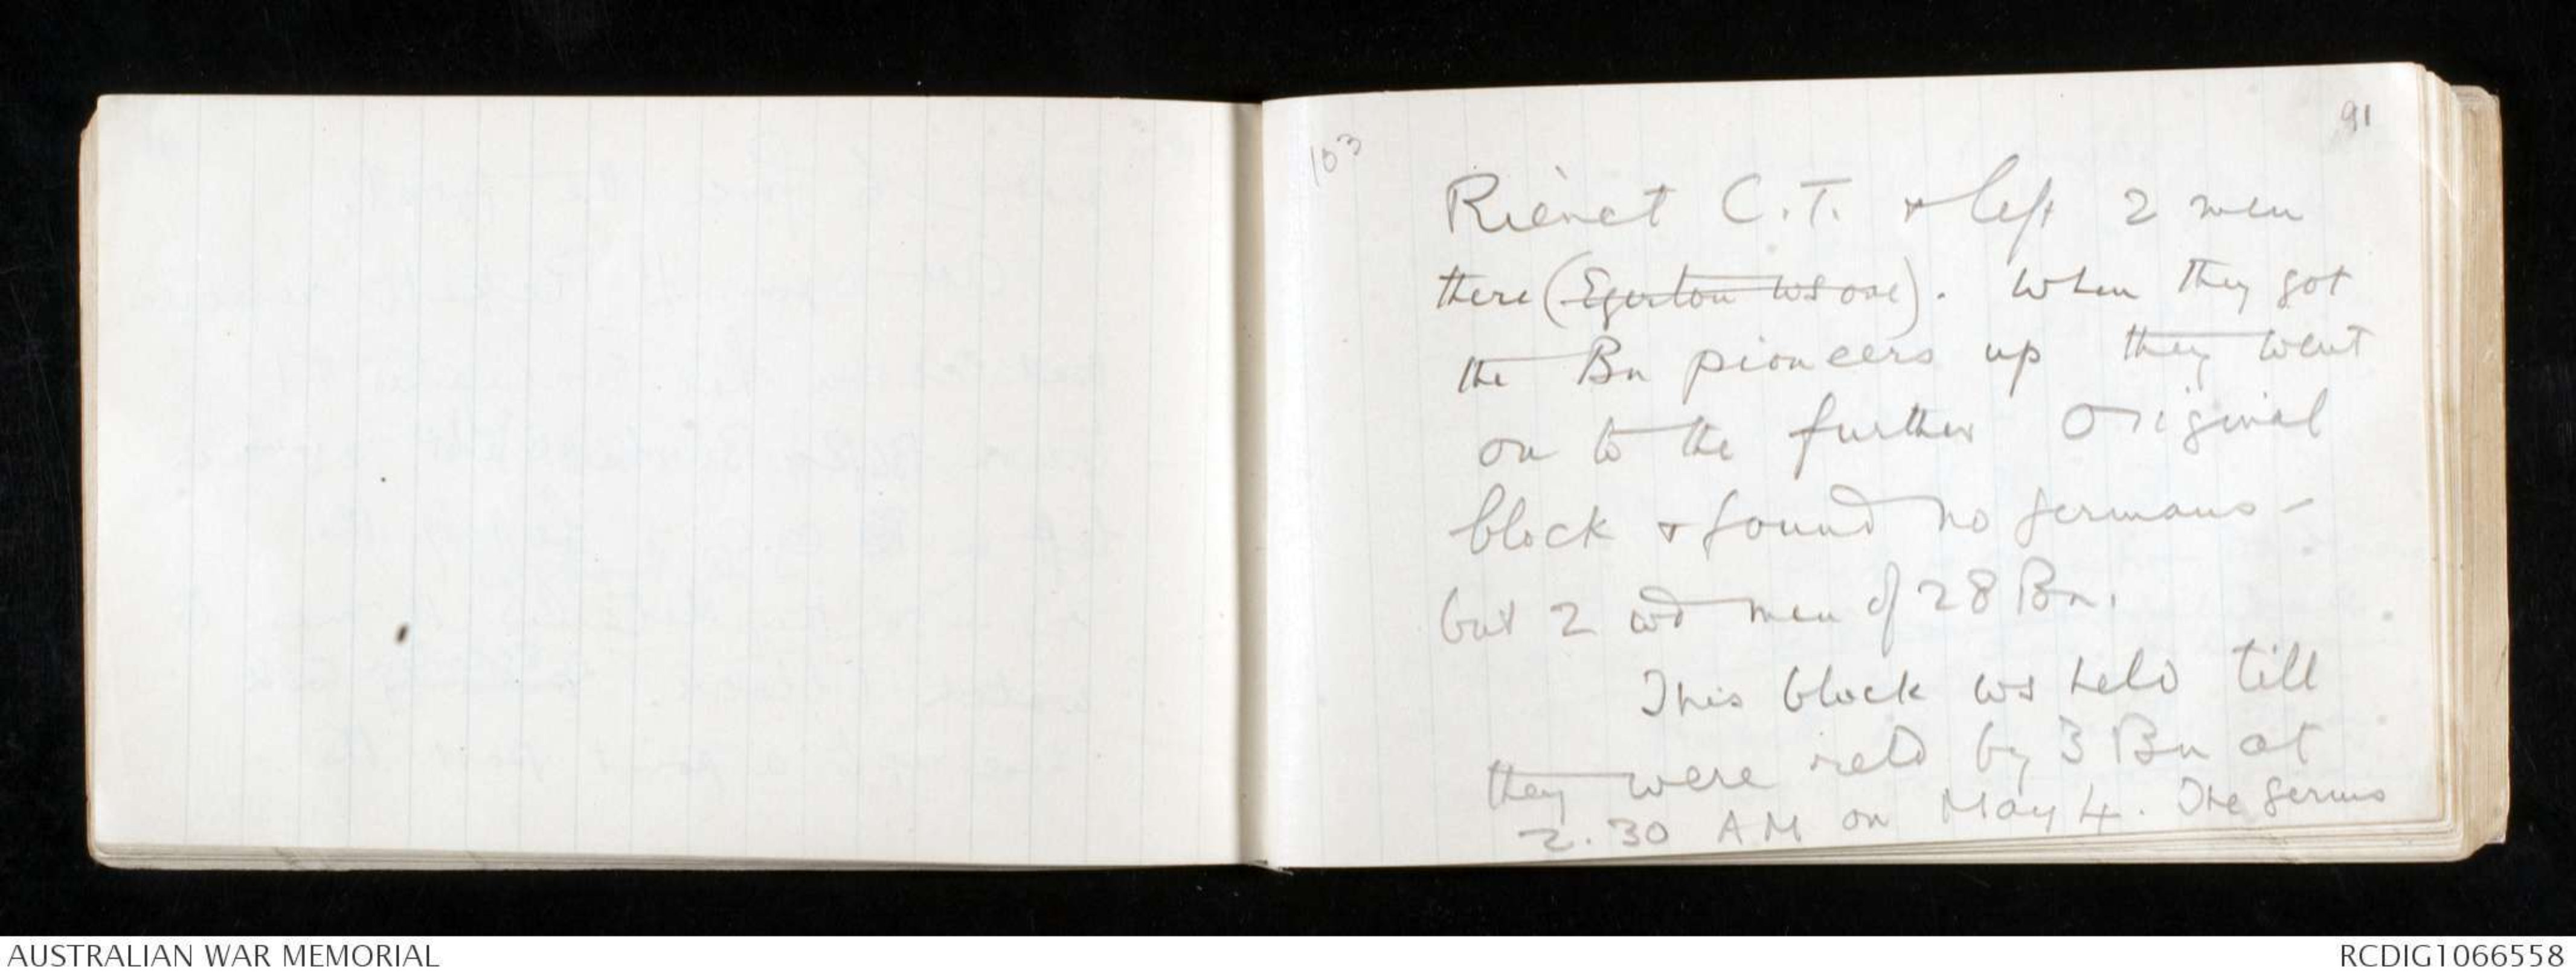 91
103
Rienct C.T. & left 2 men
there (Egerton ws one). When they got
the Bn pioneers up they went
on to the further original
block & found no germans -
but 2 wd men of 28 Bn.
This block ws held till
they were reld by 3 Bn at
2.30 AM on May 4. The germs
AUSTRALIAN WAR MEMORIAL
RCDIG1066558